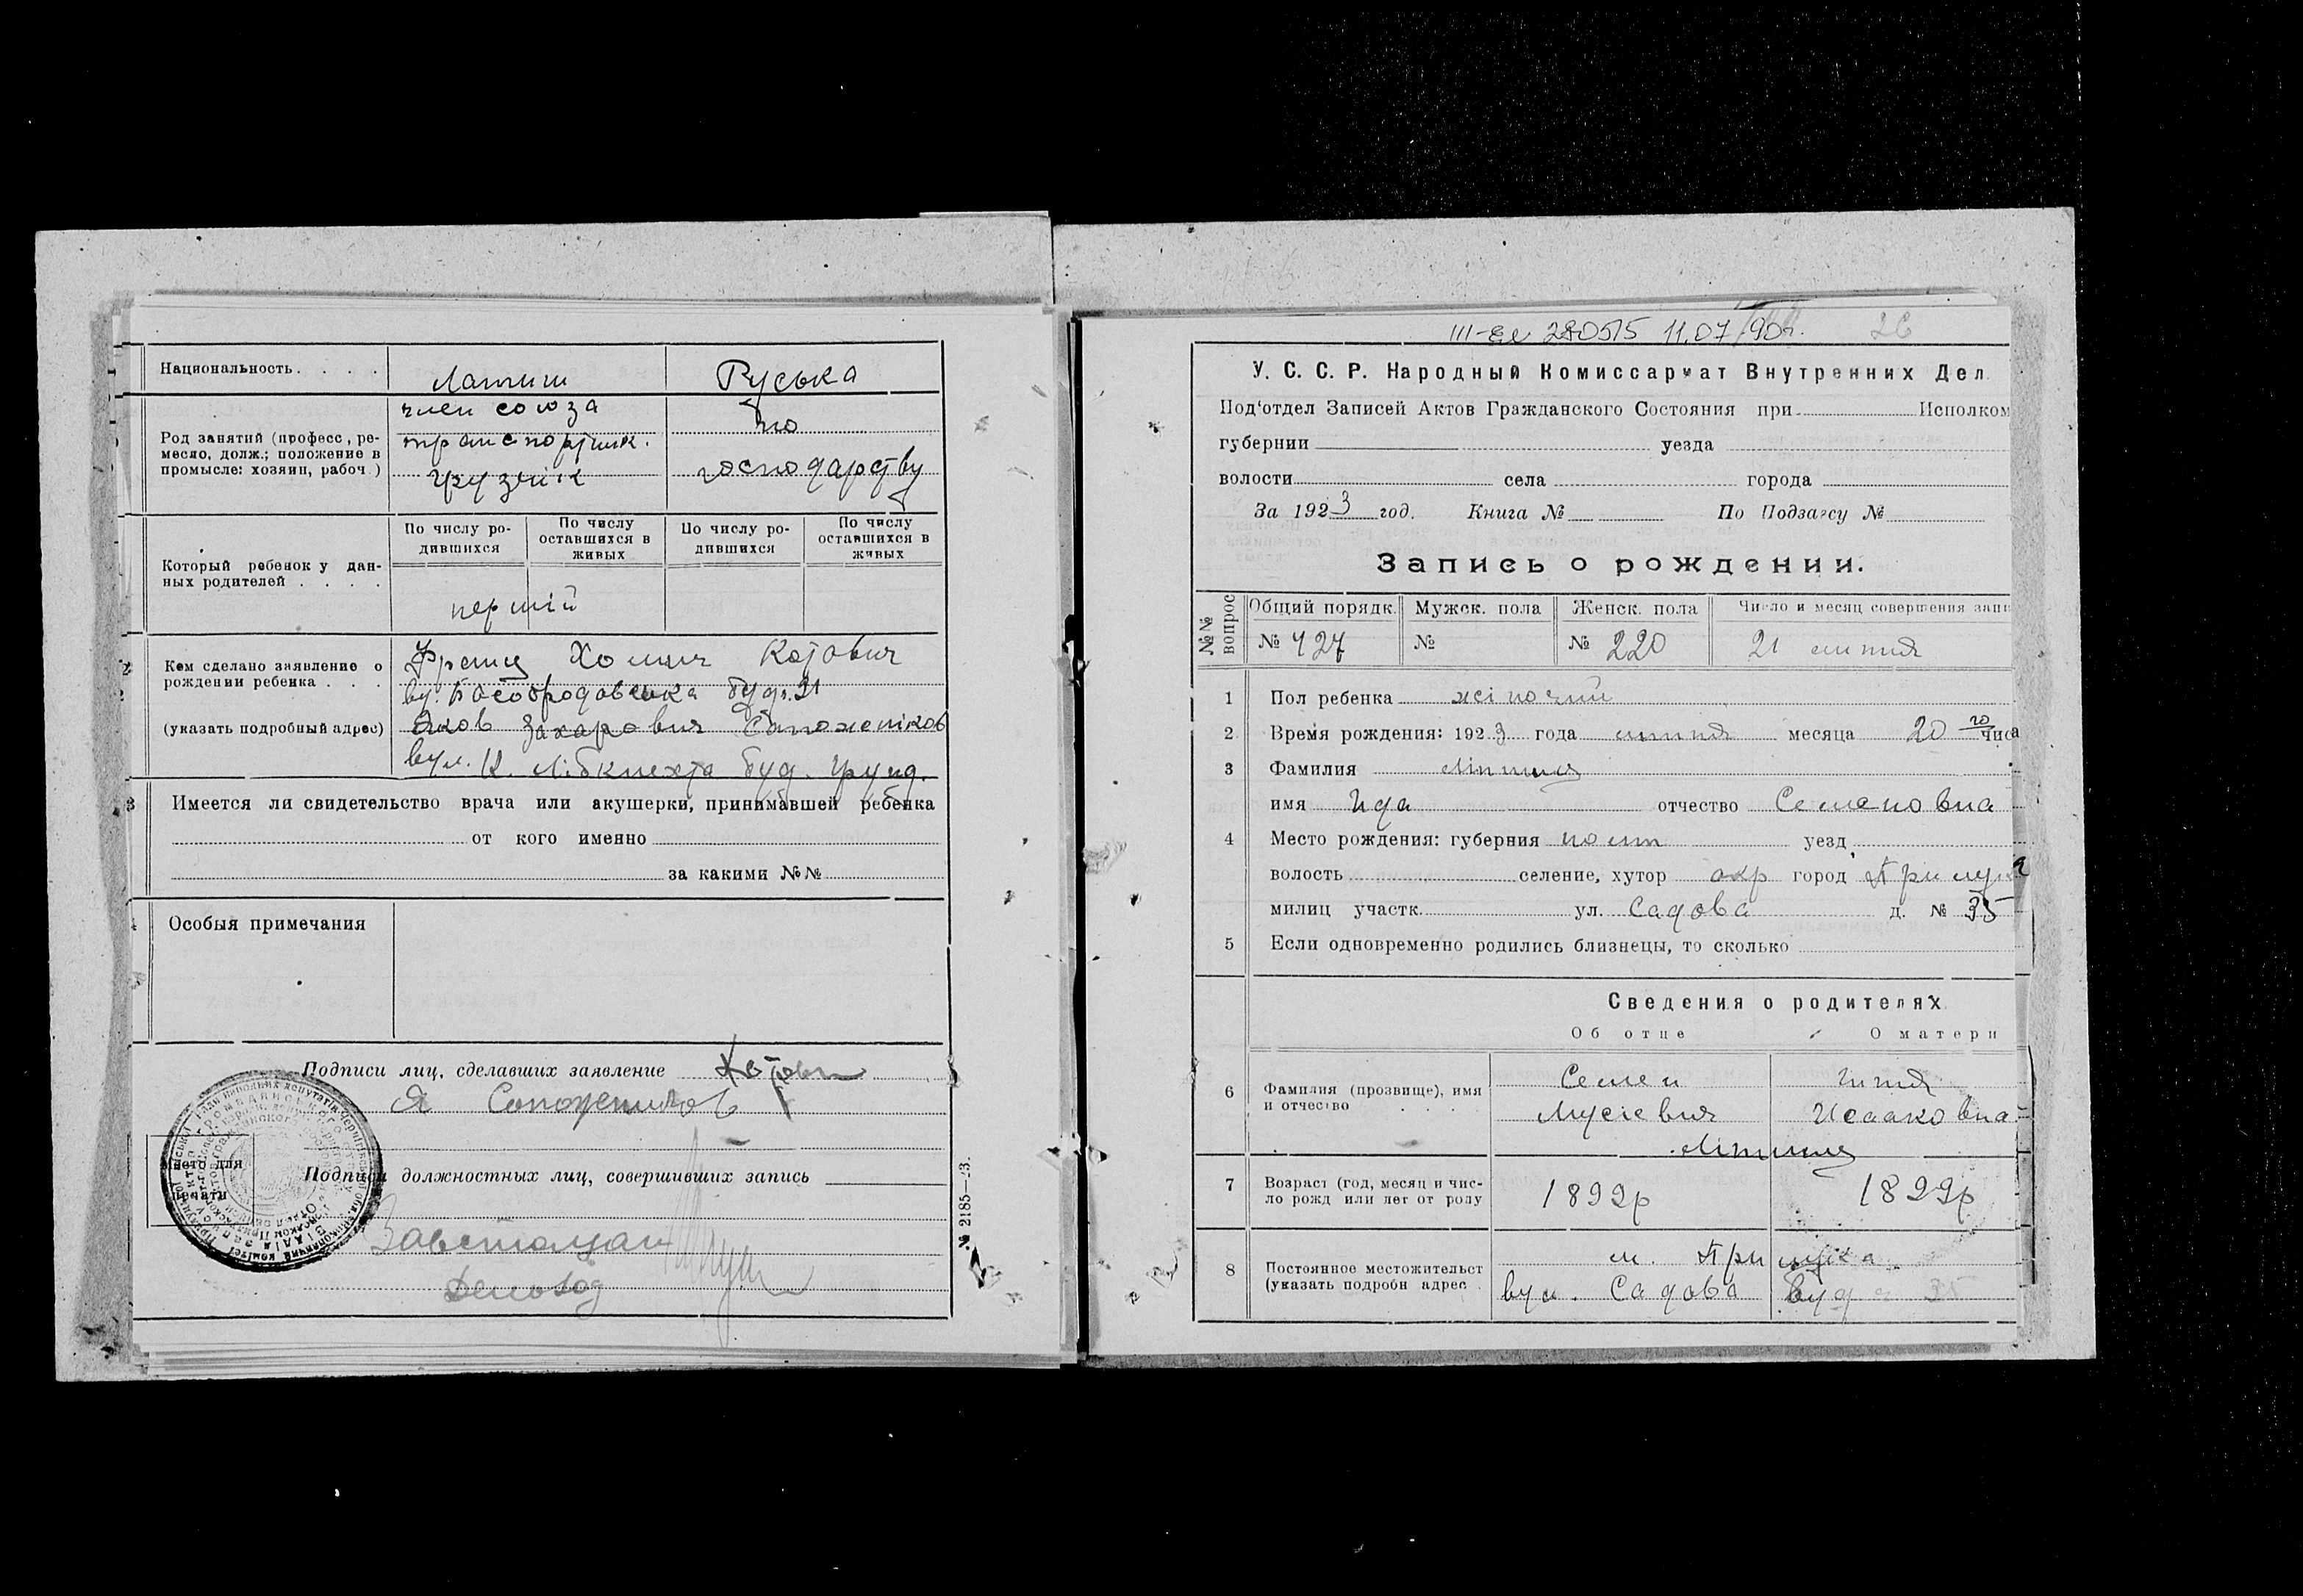 Национальность. . . . Латиш Руська
Род занятий (професс, ремесло, долж.; положение в промысле: хозяин, рабоч.)
член союза
транспортник.
грузчік
по
господарству
Который ребенок у данных родителей . . . .
По числу родившихся
По числу оставшихся в живых
По числу родившихся
По числу оставшихся в живых
перший
Кем сделано заявление о рождении ребенка . . .
(указать подробный адрес)
Франц Хомич Котович
буд. 31
Яков Захарович Сапожніков
вул. К. Лібкнехта буд.
Имеется ли свидетельство врача или акушерки, принимавшей ребенка
от кого именно
за какими №№
Особыя примечания
Подписи лиц, сделавших заявление Котович
Я Сапожников
Место для печати
Подписи должностных лиц, совершивших запись
Завстолом
Діловод
№ 2185—23.
11.07.90г. 26
У. С. С. Р. Народный Комиссариат Внутренних Дел
Под'отдел Записей Актов Гражданского Состояния при Исполком
губернии уезда
волости села города
За 1923 год. Книга № По Подзагсу №
Запись о рождении.
№№ вопрос
Общий порядк. Мужск. пола Женск. пола Число и месяц совершения запи
№ 427 № № 220 21 липня
1 Пол ребенка жіночий
2 Время рождения: 1923 года липня месяца 20го числа
3 Фамилия
имя Ида отчество Семеновна
4 Место рождения: губерния уезд
волость селение, хутор окр город Прилука
милиц участк. ул. Садова д. № 35
5 Если одновременно родились близнецы, то сколько
Сведения о родителях
Об отце О матери
6 Фамилия (прозвище), имя и отчество
Семен
Мусієвич
Исааковна
7 Возраст (год, месяц и число рожд или лет от роду 1899р 1899р
8 Постоянное местожительст (указать подробн адрес
м. Прилука
вул. Садова буд 35